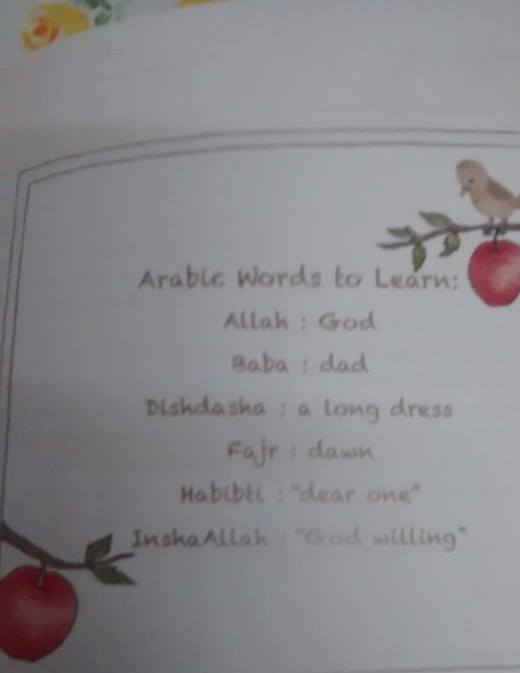 Arabic Words to Learn:
Allah : God
Baba : dad
Dishdasha : a long dress
Fajr : dawn
Habibti : "dear one"
InshaAllah : "God willing"